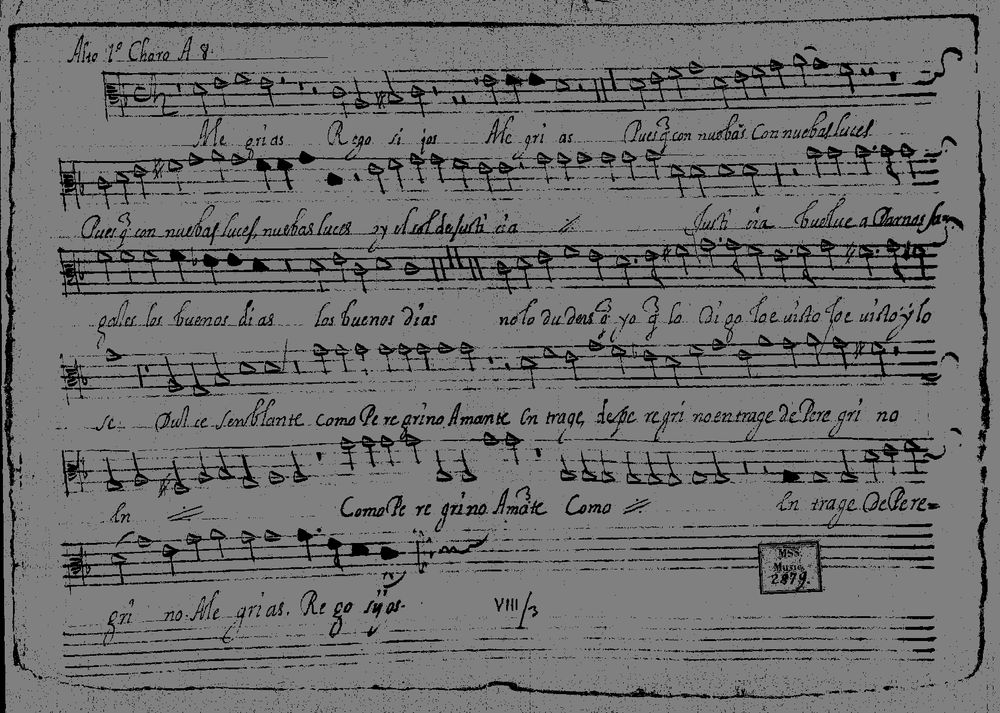 Alto 1º Choro A 8.
Ale grias Rego si jos Ale gri as Pues q̃ con nuebas Con nuebas luces
Pues q̃ con nuebas luces, nuebas luces y el sol de justi cia Justi cia buelue a Darnos sa=
gales los buenos di as los buenos dias no lo du deis q̃ yo q̃ lo Di go loe uisto loe uisto y lo
se Dul ce semblante como Pe re grino Amante En trage, de pe re gri no en trage de Pere gri no
En Como Pe re grino Amãte Como En trage De Pe re=
gri no. Ale grias. Re go sijos.
VIII/3
MSS.
Music.
2879.